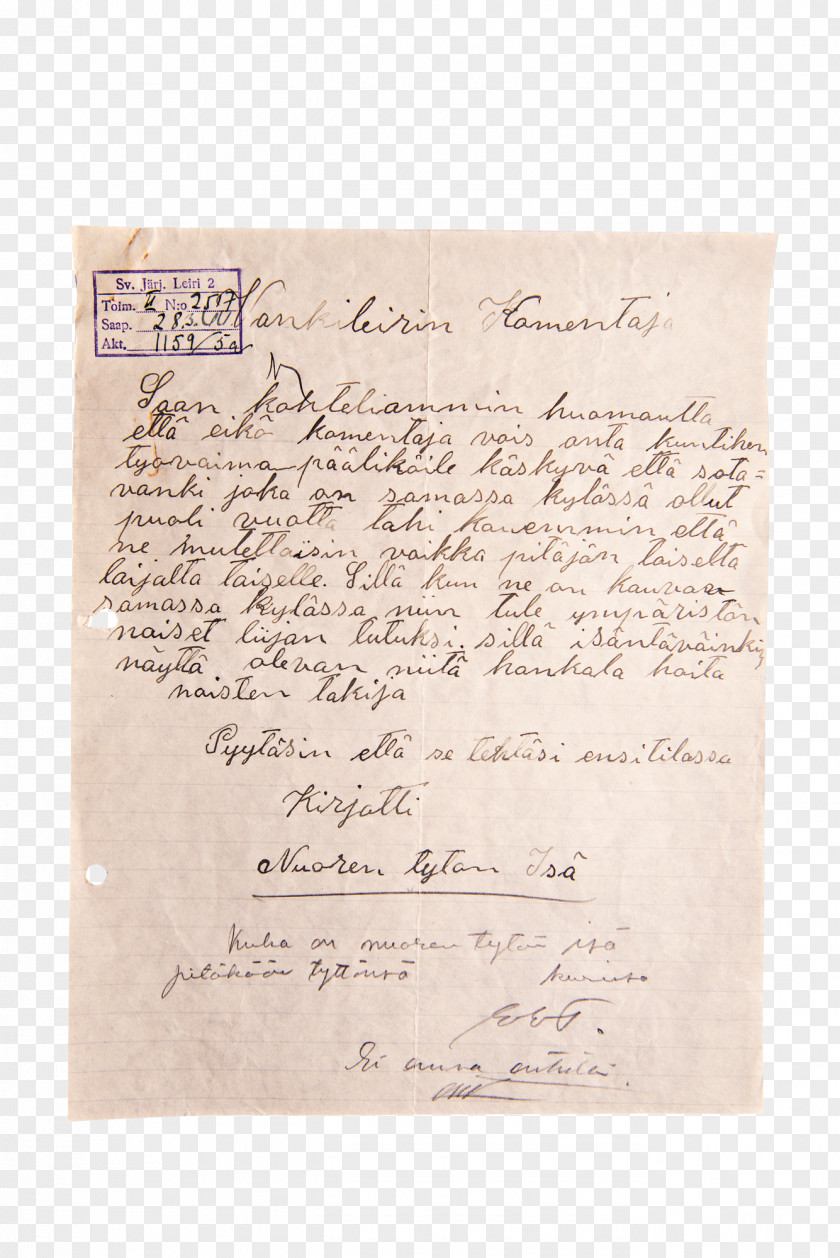 Sv. Järj. Leiri 2
Toim. II N:o 2507
Saap. 28.3.
Akt. 1159/5a
Vankileirin Komentaja
Saan kohteliammin huomautta
että eikö komentaja vois anta kuntihen
työvoima päälikölle käskyvä että sota=
vanki joka on samassa kylässä ollut
puoli vuotta tahi kauemmin että
ne mutettaisin vaikka pitäjän laiselta
laijalta taiselle. Sillä kun ne on kauvan
samassa kylässa niin tule ympäristön
naiset liijan tutuksi. sillä isäntäväinkin
näyttä olevan niitä hankala hoita
naisten takija
Pyytäsin että se tehtäsi ensitilassa
Kirjatti
Nuoren tytan Isä
Kuka on nuoren tytön isä
pitäköön tyttönsä kurissa
Ei anna